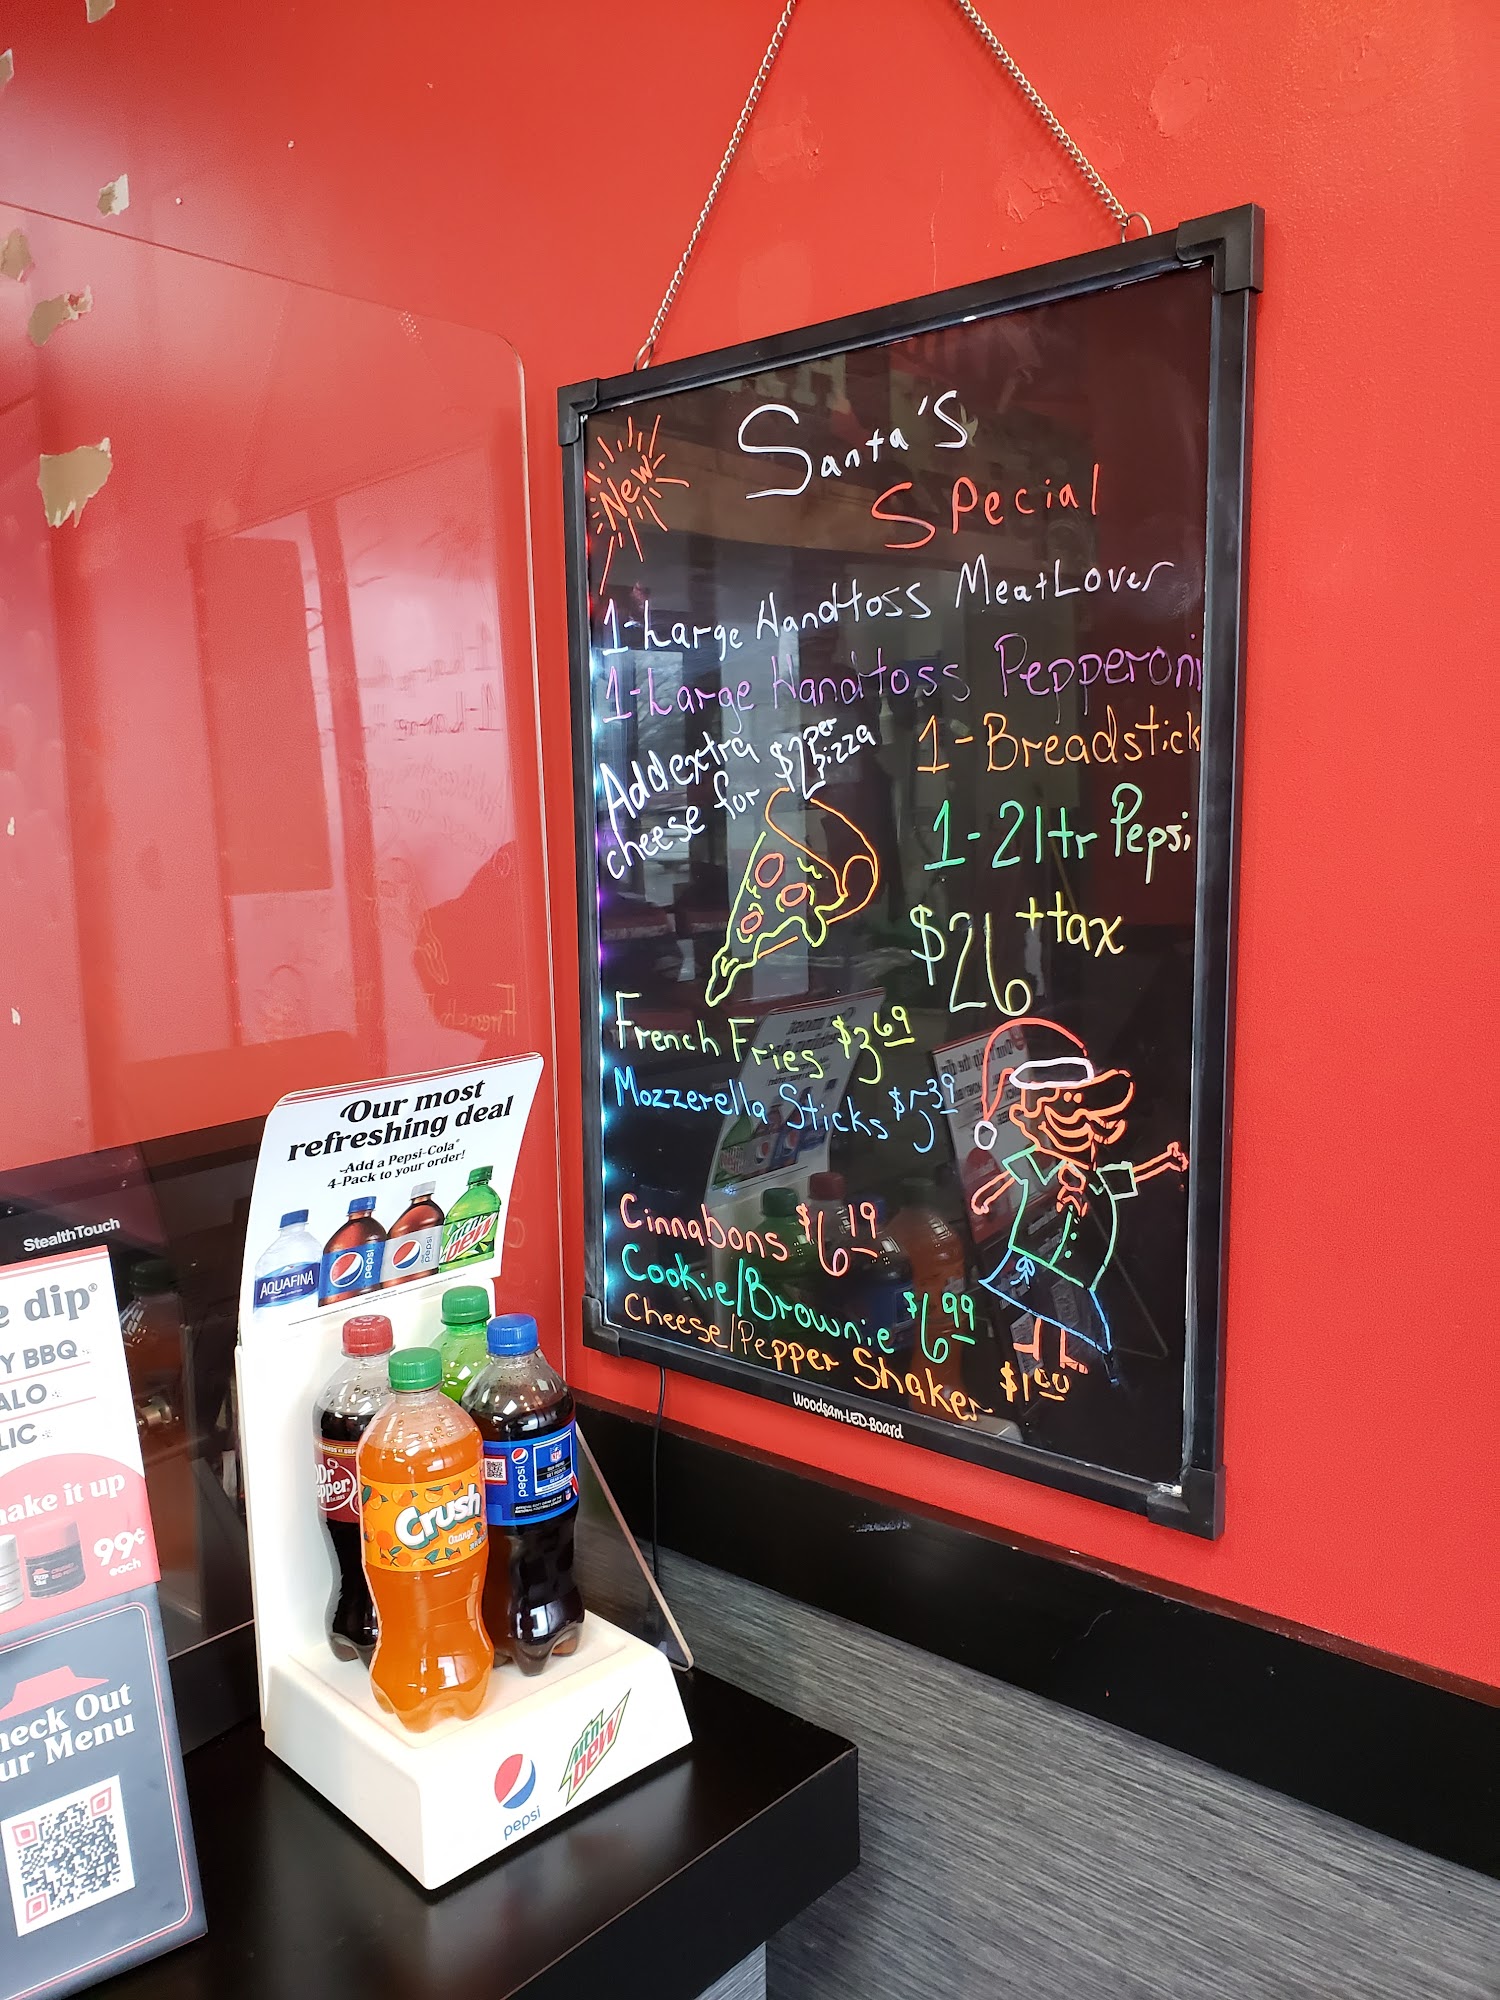 New
Santa's
Special
1-Large Handtoss MeatLover
1-Large Handtoss Pepperoni
Add extra
cheese for $2 per pizza
1-Breadstick
1-2ltr Pepsi
$26 +tax
French Fries $3.69
Mozzerella Sticks $5.39
Cinnabons $6.19
Cookie/Brownie $6.99
Cheese/Pepper Shaker $1.00
Woodsam-LED-Board
Our most
refreshing deal
Add a Pepsi-Cola®
4-Pack to your order!
AQUAFINA
pepsi
pepsi
Mtn
DEW
Dr
Pepper
Crush
Orange
pepsi
pepsi
Mtn
DEW
StealthTouch
e dip®
Y BBQ
ALO
LIC
ake it up
99¢
each
heck Out
ur Menu